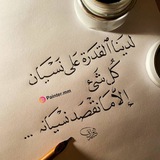 لدينا القدرة على نسيان
كل شيء
Painter.mm
إلا ما نقصد نسيانه ...